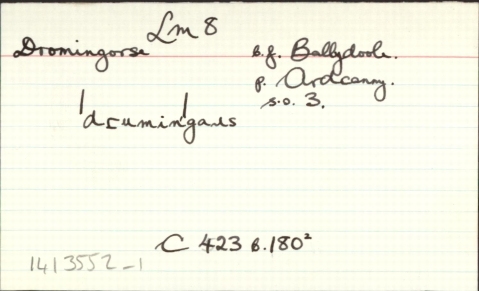 Lm 8
Dromingorse
b.f. Ballydoole.
p. Ardcanny.
s.o. 3.
C 423 B.180²
1413552-1